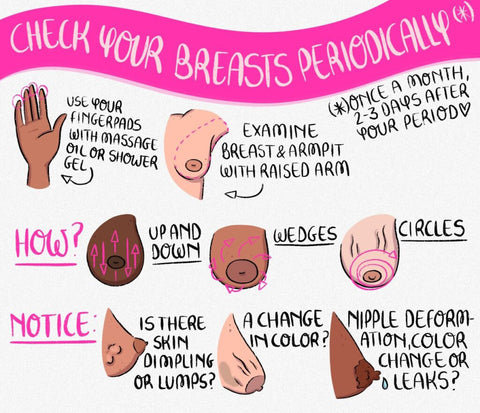 CHECK YOUR BREASTS PERIODICALLY(*)
(*)ONCE A MONTH,
2-3 DAYS AFTER
YOUR PERIOD♡
USE YOUR
FINGERPADS
WITH MASSAGE
OIL OR SHOWER
GEL
EXAMINE
BREAST & ARMPIT
WITH RAISED ARM
HOW?
UP AND
DOWN
WEDGES
CIRCLES
NOTICE:
IS THERE
SKIN
DIMPLING
OR LUMPS?
A CHANGE
IN COLOR?
NIPPLE DEFORM-
ATION, COLOR
CHANGE OR
LEAKS?